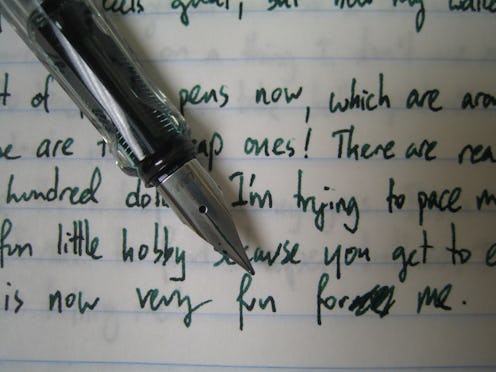 but now my
t of pens now, which are aro
e are ap ones! There are rea
hundred dol I'm trying to pace m
fun little hobby because you get to e
is now very fun for me.